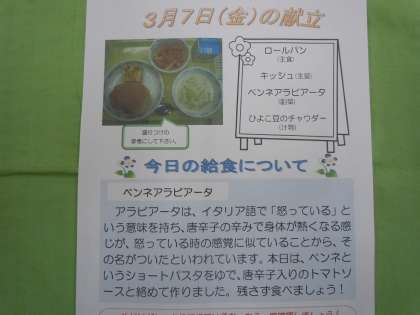 3月7日(金)の献立
ロールパン
(主食)
キッシュ(主菜)
ペンネアラビアータ
(副菜)
ひよこ豆のチャウダー
(汁物)
盛付つけの
参考にして下さい。
今日の給食について
ペンネアラビアータ
アラビアータは、イタリア語で「怒っている」と
いう意味を持ち、唐辛子の辛みで身体が熱くなる感
じが、怒っている時の感覚に似ていることから、そ
の名がついたといわれています。本日は、ペンネと
いうショートパスタをゆで、唐辛子入りのトマトソ
ースと絡めて作りました。残さず食べましょう!